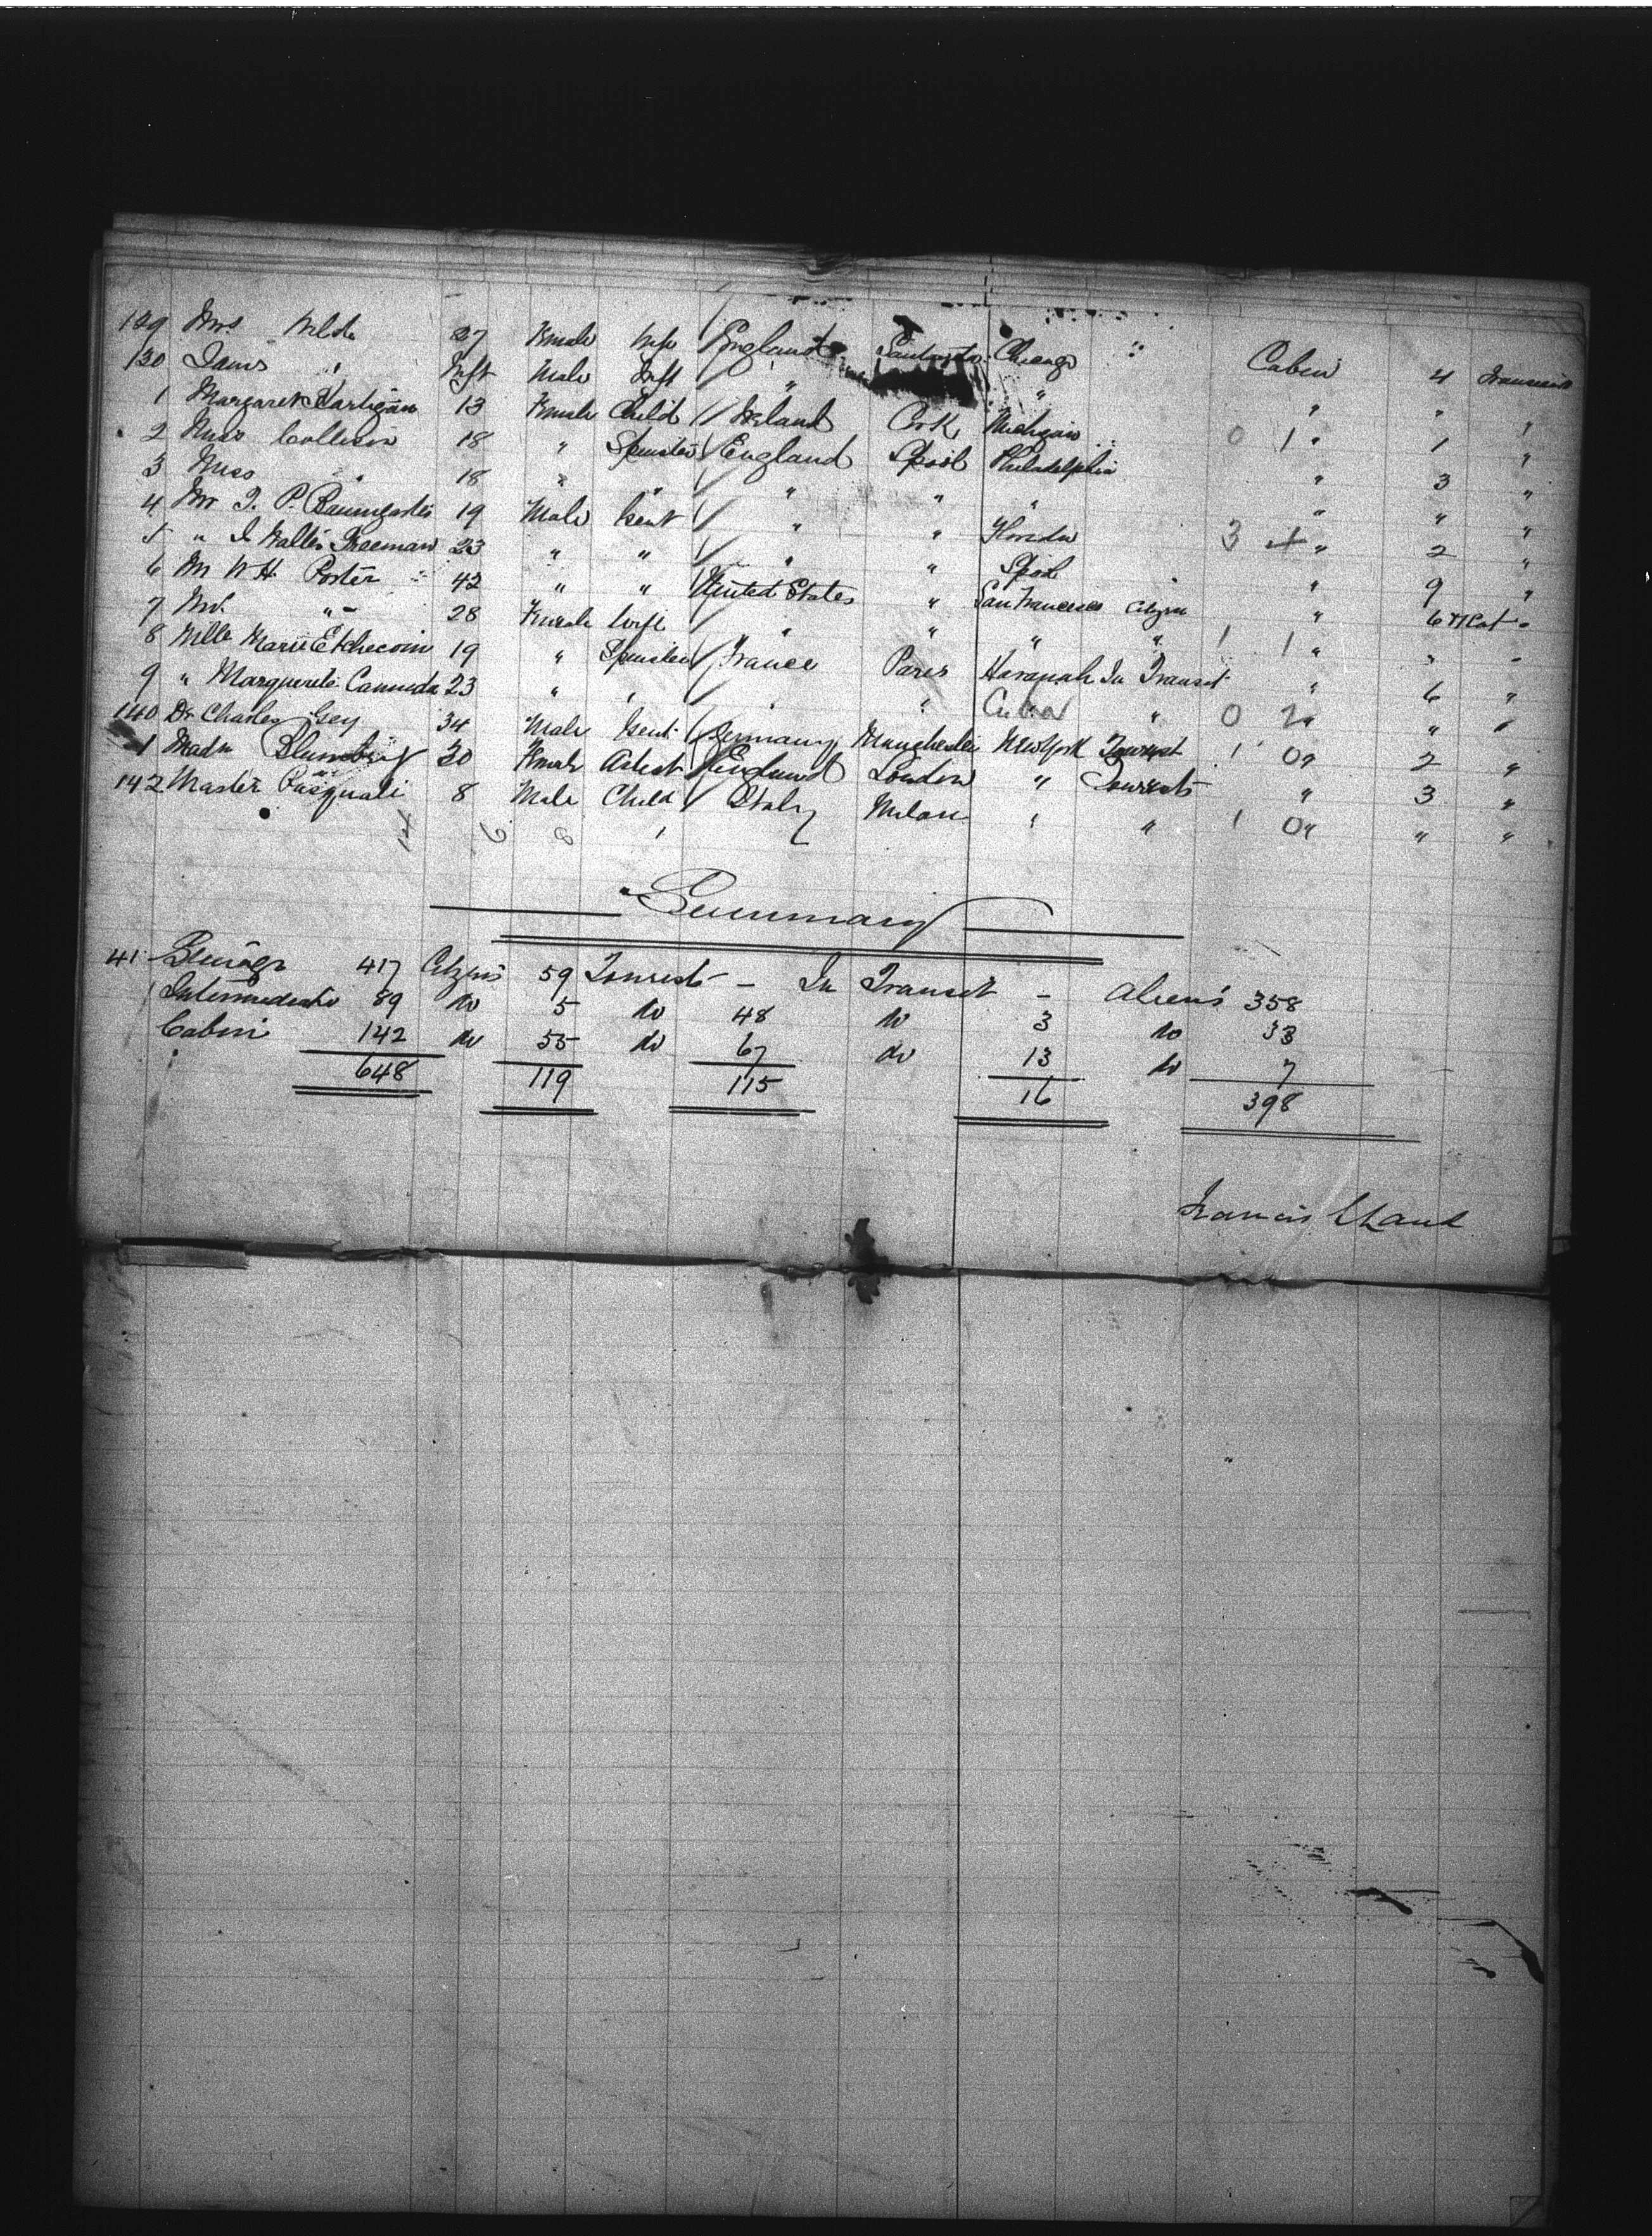 129 Mrs Wilde 27 Female Wife England Chicago " Cabin 4 Transient
130 " Inft Male Inft " " " " "
1 Margaret Hartigan 13 Female Child Ireland Cork Michigan 0 1 " 1 "
2 Miss Collison 18 " Spinster England Lpool Philadelphia " 3 "
3 Miss " 18 " " " " " " " "
4 Mr J. P. Baumgarten 19 Male Gent " " Florida 3 4 " 2 "
5 " J Walter Freeman 23 " " " " Lpool " 9 "
6 Mr W H. Porter 42 " " United States " San Francisco Citizen " 6 "
7 Mrs " 28 Female Wife " " " " 1 1 " " "
8 Mlle Marie Etchecoin 19 " Spinster France Paris Havanah In Transit " 6 "
9 " Marguerite 23 " " " " Cuba " 0 2 " " "
140 Dr Charles Gey 34 Male Gent Germany Manchester New York Tourist 1 0 " 2 "
1 Madm 30 Female Artist England London " Tourists " 3 "
142 Master Pasquali 8 Male Child Italy Milan " " 1 0 " " "
14 6 8 1
Summary
41 Steerage 417 Citizens 59 Tourist - In Transit - Aliens 358
Intermediate 89 do 5 do 48 do 3 do 33
Cabin 142 do 55 do 67 do 13 do 7
648 119 115 16 398
Francis